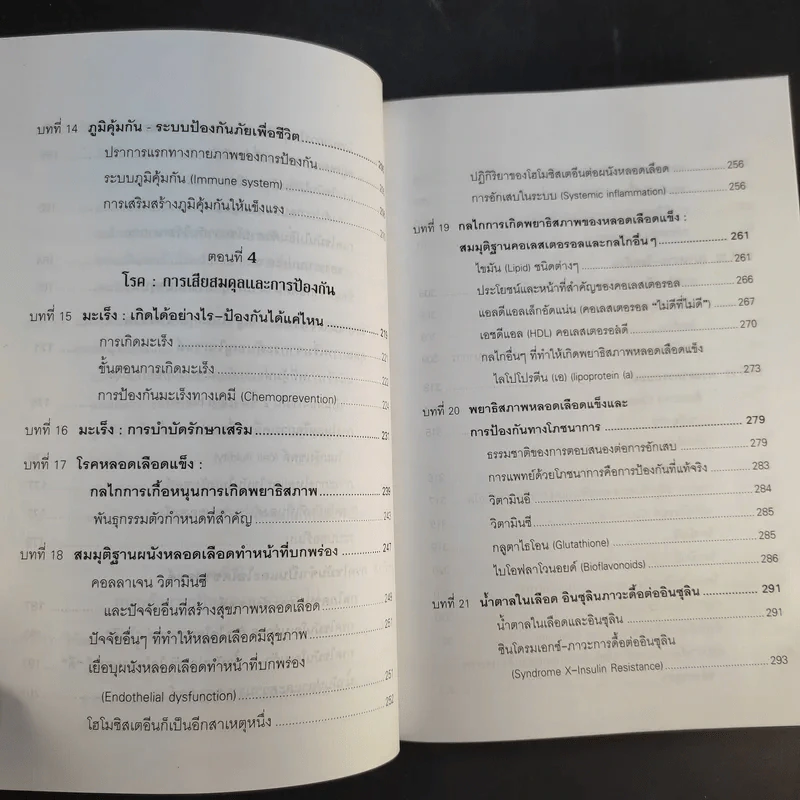 บทที่ 14 ภูมิคุ้มกัน - ระบบป้องกันภัยเพื่อชีวิต
ปราการแรกทางกายภาพของการป้องกัน
ระบบภูมิคุ้มกัน (Immune system)
การเสริมสร้างภูมิคุ้มกันให้แข็งแรง
ตอนที่ 4
โรค : การเสียสมดุลและการป้องกัน
บทที่ 15 มะเร็ง : เกิดได้อย่างไร-ป้องกันได้แค่ไหน 219
การเกิดมะเร็ง 221
ขั้นตอนการเกิดมะเร็ง 222
การป้องกันมะเร็งทางเคมี (Chemoprevention) 224
บทที่ 16 มะเร็ง : การบำบัดรักษาเสริม 231
บทที่ 17 โรคหลอดเลือดแข็ง :
กลไกการเกื้อหนุนการเกิดพยาธิสภาพ 239
พันธุกรรมตัวกำหนดที่สำคัญ 243
บทที่ 18 สมมุติฐานผนังหลอดเลือดทำหน้าที่บกพร่อง 247
คอลลาเจน วิตามินซี
และปัจจัยอื่นที่สร้างสุขภาพหลอดเลือด 249
ปัจจัยอื่นๆ ที่ทำให้หลอดเลือดมีสุขภาพ 251
เยื่อบุผนังหลอดเลือดทำหน้าที่บกพร่อง
(Endothelial dysfunction) 251
โฮโมซิสเตอีนก็เป็นอีกสาเหตุหนึ่ง 252
ปฏิกิริยาของโฮโมซิสเตอีนต่อผนังหลอดเลือด 256
การอักเสบในระบบ (Systemic inflammation) 256
บทที่ 19 กลไกการเกิดพยาธิสภาพของหลอดเลือดแข็ง :
สมมุติฐานคอเลสเตอรอลและกลไกอื่นๆ 261
ไขมัน (Lipid) ชนิดต่างๆ 261
ประโยชน์และหน้าที่สำคัญของคอเลสเตอรอล 266
แอลดีแอลเล็กอัดแน่น (คอเลสเตอรอล "ไม่ดีที่ไม่ดี") 267
เอชดีแอล (HDL) คอเลสเตอรอลดี 270
กลไกอื่นๆ ที่ทำให้เกิดพยาธิสภาพหลอดเลือดแข็ง
ไลโปโปรตีน (เอ) (lipoprotein (a) 273
บทที่ 20 พยาธิสภาพหลอดเลือดแข็งและ
การป้องกันทางโภชนาการ 279
ธรรมชาติของการตอบสนองต่อการอักเสบ 279
การแพทย์ด้วยโภชนาการคือการป้องกันที่แท้จริง 283
วิตามินอี 284
วิตามินซี 285
กลูตาไธโอน (Glutathione) 285
ไบโอฟลาโวนอยด์ (Bioflavonoids) 286
บทที่ 21 น้ำตาลในเลือด อินซูลินภาวะดื้อต่ออินซูลิน 291
น้ำตาลในเลือดและอินซูลิน 291
ซินโดรมเอกซ์-ภาวะการดื้อต่ออินซูลิน
(Syndrome X-Insulin Resistance) 293